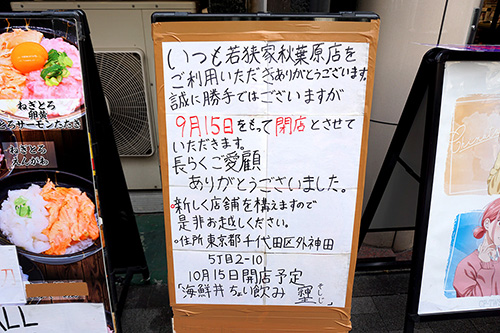 いつも若狭家秋葉原店を
ご利用いただきありがとうございます
誠に勝手ではございますが
9月15日をもって閉店とさせて
いただきます。
長らくご愛顧
ありがとうございました。
・新しく店舗を構えますので
是非お越しください。
・住所 東京都千代田区外神田
5丁目2-10
10月15日開店予定
「海鮮丼 ちょい飲み
ねぎとろ
卵黄
とろサーモンたたき
ねぎとろ
えんがわ
ALL